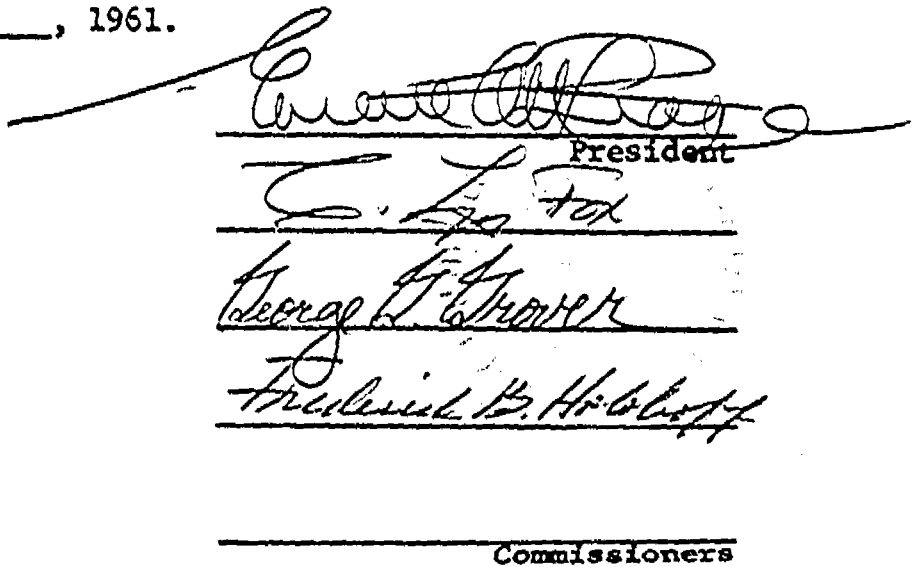 , 1961.
Everett
President
C. Lyn Fox
George G. Grover
Frederick B. Holoboff
Commissioners